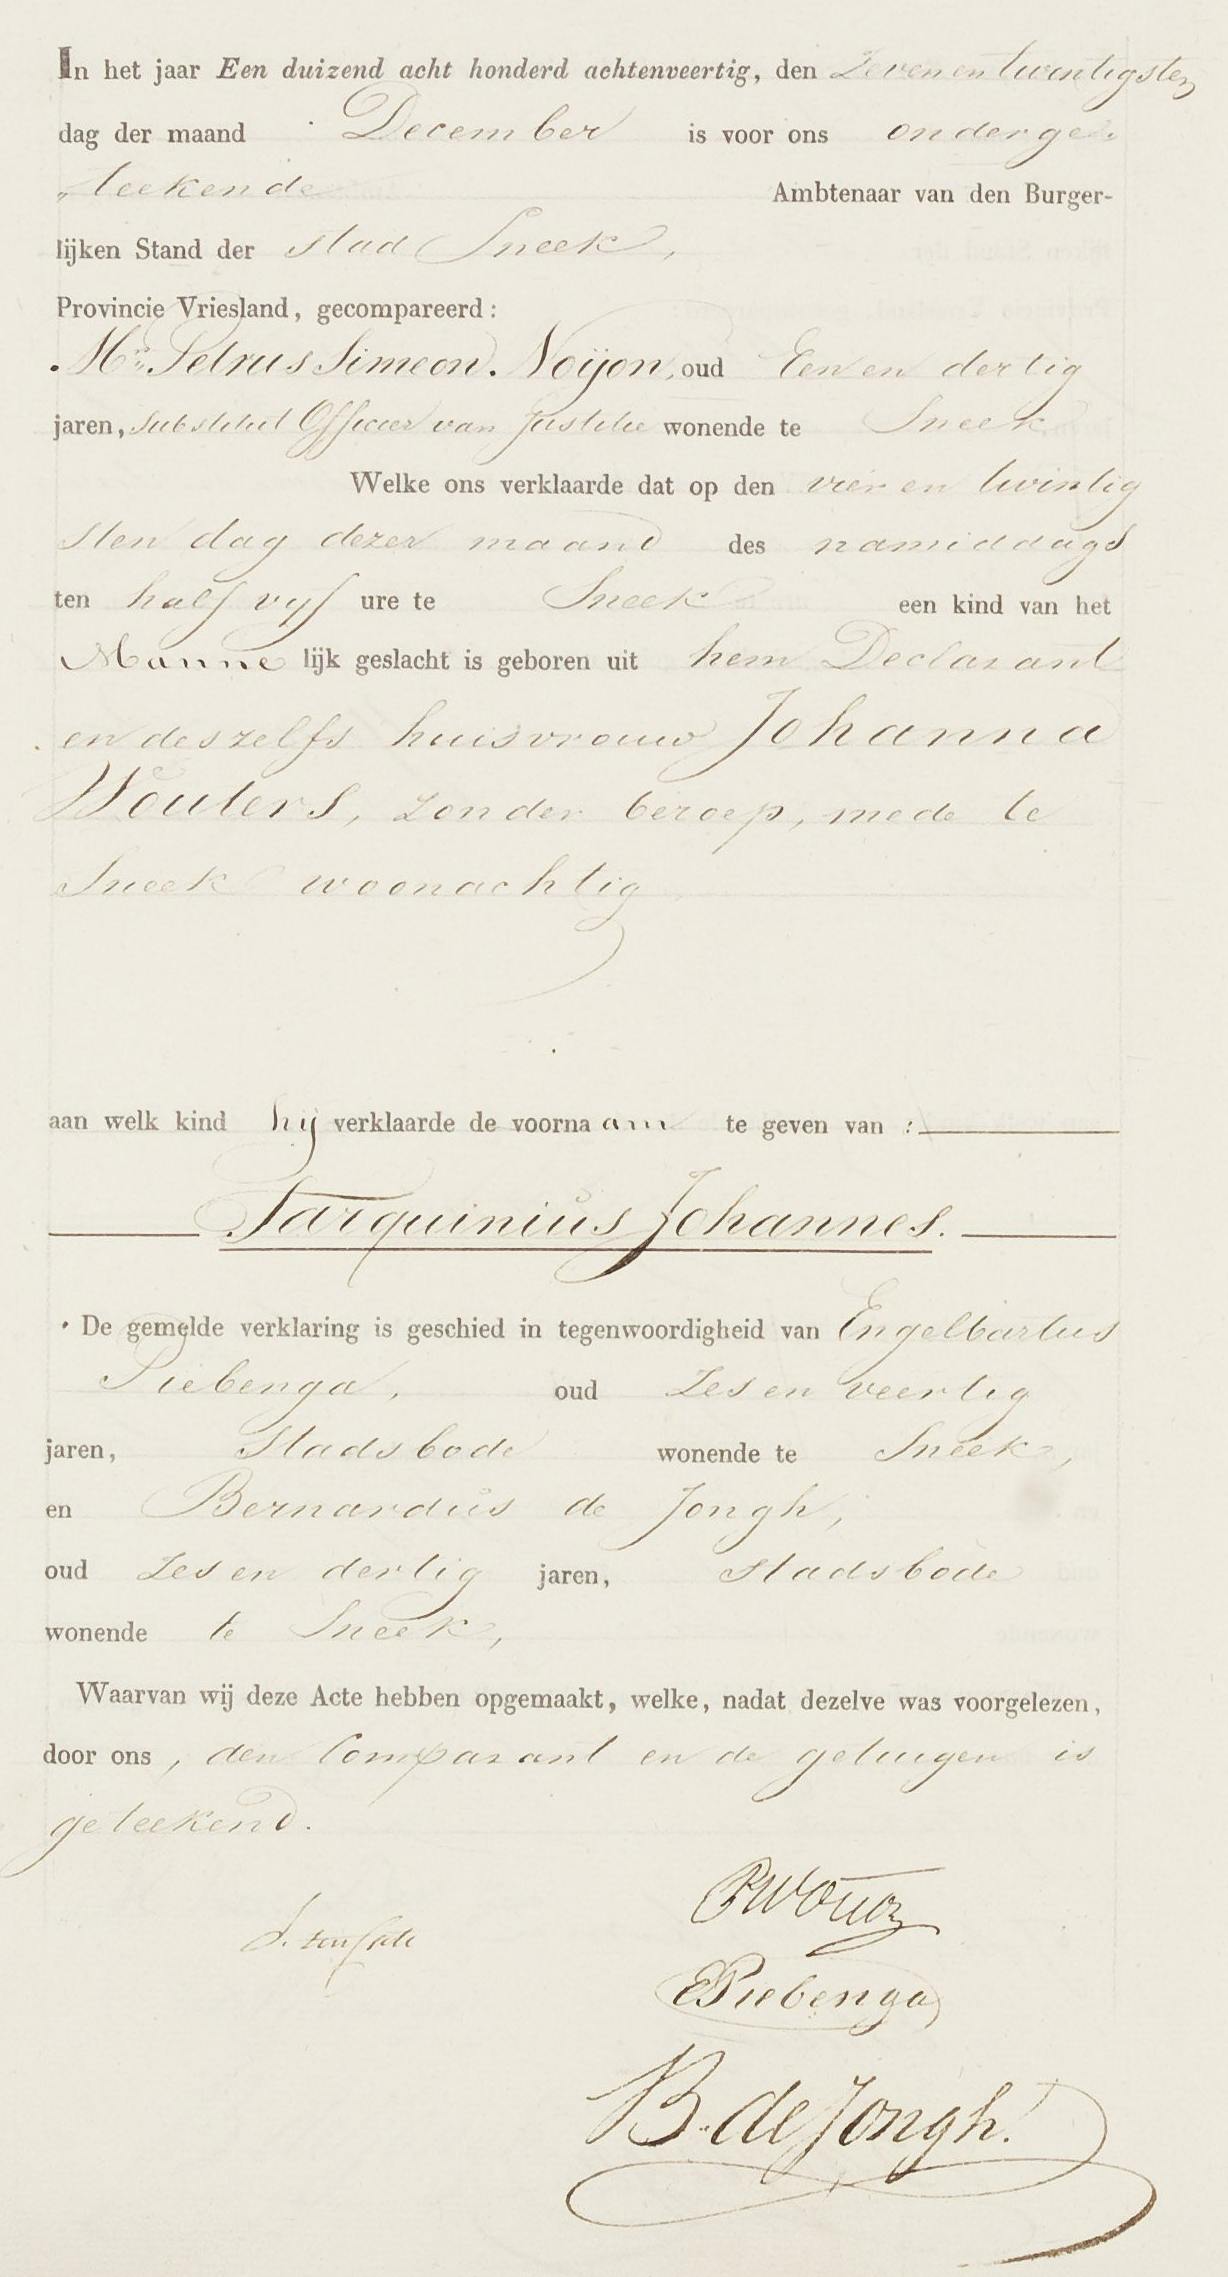 In het jaar Een duizend acht honderd achtenveertig, den Zevenentwintigsten
dag der maand December is voor ons onderge-
teekende Ambtenaar van den Burger-
lijken Stand der stad Sneek,
Provincie Vriesland, gecompareerd:
Mr. Petrus Simeon Noijon, oud Een en dertig
jaren, substituut Officier van Justitie wonende te Sneek
Welke ons verklaarde dat op den vier en twintig
sten dag dezer maand des namiddags
ten half vyf ure te Sneek een kind van het
Manne lijk geslacht is geboren uit hem Declarant
en deszelfs huisvrouw Johanna
Wouters, zonder beroep, mede te
Sneek woonachtig
aan welk kind hij verklaarde de voorna am te geven van :
Tarquinius Johannes.
De gemelde verklaring is geschied in tegenwoordigheid van Engelbartus
Piebenga, oud Zes en veertig
jaren, Stadsbode wonende te Sneek,
en Bernardus de Jongh,
oud Zes en dertig jaren, stadsbode
wonende te Sneek,
Waarvan wij deze Acte hebben opgemaakt, welke, nadat dezelve was voorgelezen,
door ons, den Comparant en de getuigen is
geteekend.
EPiebenga
B. de Jongh.